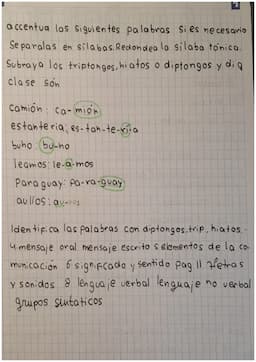 accentua las siguientes palabras si es necesario
Separalas en sílabas. Redondea la sílaba tónica.
Subraya los triptongos, hiatos o diptongos y di q
clase són
camión: ca-mión
estanteria: es-tan-te-rí-a
buho: bu-ho
leamos: le-a-mos
Paraguay: pa-ra-guay
aullos: au-
Identifica las palabras con diptongos, trip, hiatos.
4 mensaje oral mensaje escrito 5 elementos de la co-
municación 6 significado y sentido pag 11 7 letras
y sonidos 8 lenguaje verbal lenguaje no verbal
grupos